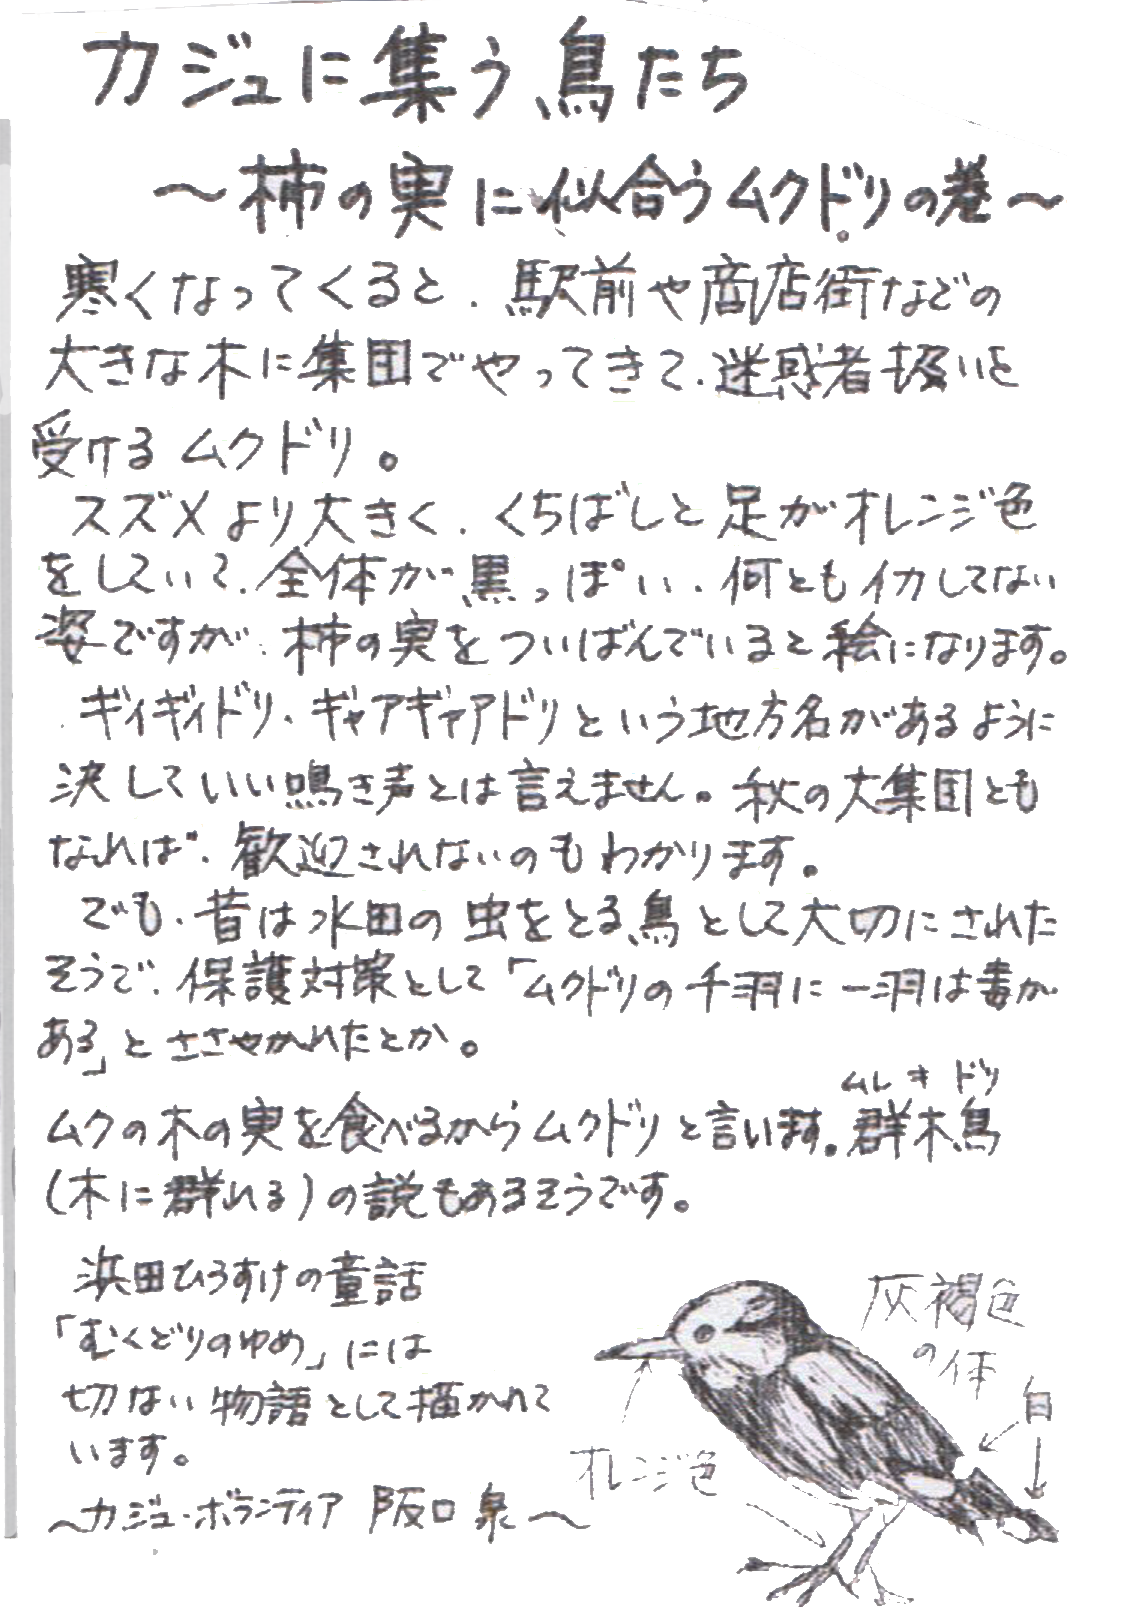 カジュに集う鳥たち
～柿の実に似合うムクドリの巻～
寒くなってくると、駅前や商店街などの
大きな木に集団でやってきて、迷惑者扱いを
受けるムクドリ。
スズメより大きく、くちばしと足がオレンジ色
をしていて、全体が黒っぽい、何ともイカしてない
姿ですが、柿の実をついばんでいると絵になります。
ギィギィドリ、ギャアギャアドリという地方名があるように
決していい鳴き声とは言えません。秋の大集団とも
なれば、歓迎されないのもわかります。
でも、昔は水田の虫をとる鳥として大切にされた
そうで、保護対策として「ムクドリの千羽に一羽は毒が
ある」とささやかれたとか。
ムレキドリ
ムクの木の実を食べるからムクドリと言います。群木鳥
（木に群れる）の説もあるそうです。
浜田ひろすけの童話
「むくどりのゆめ」には
切ない物語として描かれて
います。
～カジュ・ボランティア 阪口 泉～
灰褐色
の体
白
オレンジ色